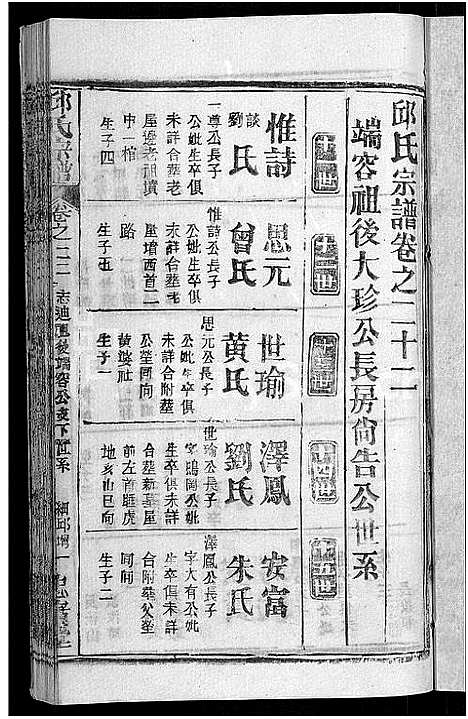 邱氏宗譜卷之二十二
端容祖後大珍公長房尙告公世系
惟詩
談
劉氏
一尊公長子
公妣生卒俱
未詳合塟老
屋邊老祖墳
中一棺
生子四
思元
曾氏
惟詩公長子
公妣生卒俱
未詳合塟老
屋墳西首二
路
生子五
世瑜
黃氏
思元公長子
公妣生卒俱
未詳合附塟
公塋同向
生子一
澤鳳
劉氏
世瑜公長子
字鳴岡公妣
生卒俱未詳
合塟新墓屋
前左首匪虎
地亥山巳向
安富
朱氏
澤鳳公長子
字大有公妣
生卒俱未詳
合附塟父塋
同向
生子二
邱氏宗譜
卷之二二
端容公支下世系